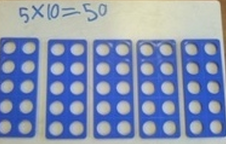 5×10=50